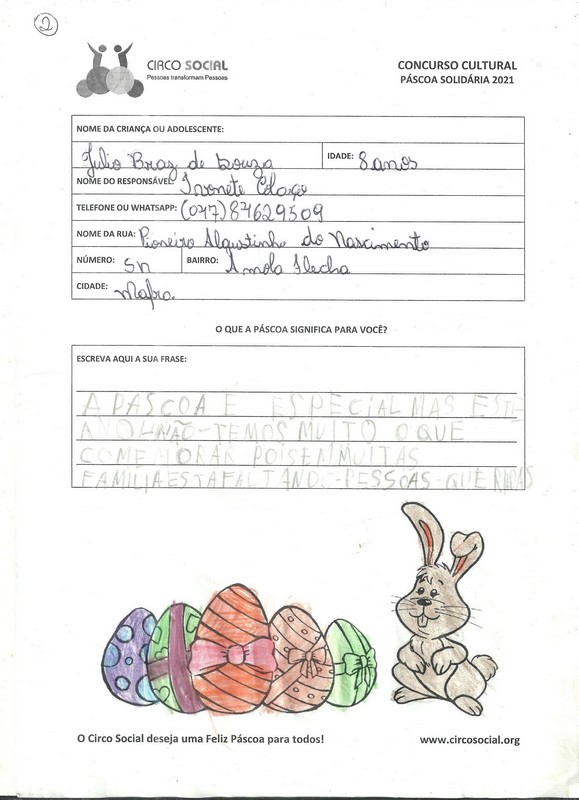 2
CIRCO SOCIAL
Pessoas transformam Pessoas
CONCURSO CULTURAL
PÁSCOA SOLIDÁRIA 2021
NOME DA CRIANÇA OU ADOLESCENTE:
Julio Braz de Souza IDADE: 8 anos
NOME DO RESPONSÁVEL: Ivonete Colaço
TELEFONE OU WHATSAPP: (047) 87629509
NOME DA RUA: Pioneiro Algustinho do Nascimento
NÚMERO: Sn BAIRRO: Amola Flecha
CIDADE: Mafra.
O QUE A PÁSCOA SIGNIFICA PARA VOCÊ?
ESCREVA AQUI A SUA FRASE:
A PÁSCOA É ESPECIAL MAS ESTE
ANO NÃO-TEMOS MUITO O QUE
COMEMORAR POIS EN MUITAS
FAMÍLIA ESTA FALTANDO-PESSOAS-QUERIDAS
O Circo Social deseja uma Feliz Páscoa para todos!
www.circosocial.org